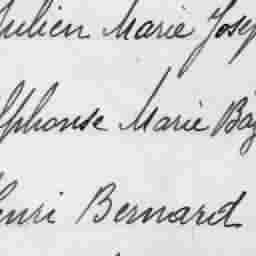 Julien Marie Josep
lphonse Marie Báz
enri Bernard